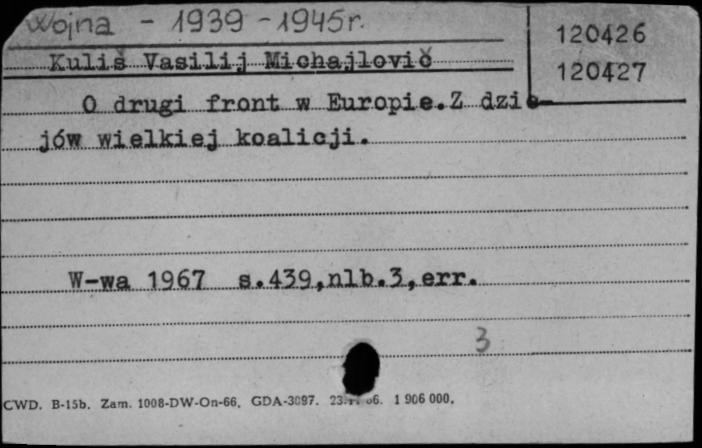 Wojna - 1939 - 1945r.
120426
Kuliš Vasilij Michajlovič
120427
O drugi front w Europie. Z dzie-
jów wielkiej koalicji.
W-wa 1967 s.439,nlb.3,err.
3
CWD. B-15b. Zam. 1008-DW-On-66. GDA-3097. 66. 1 906 000.